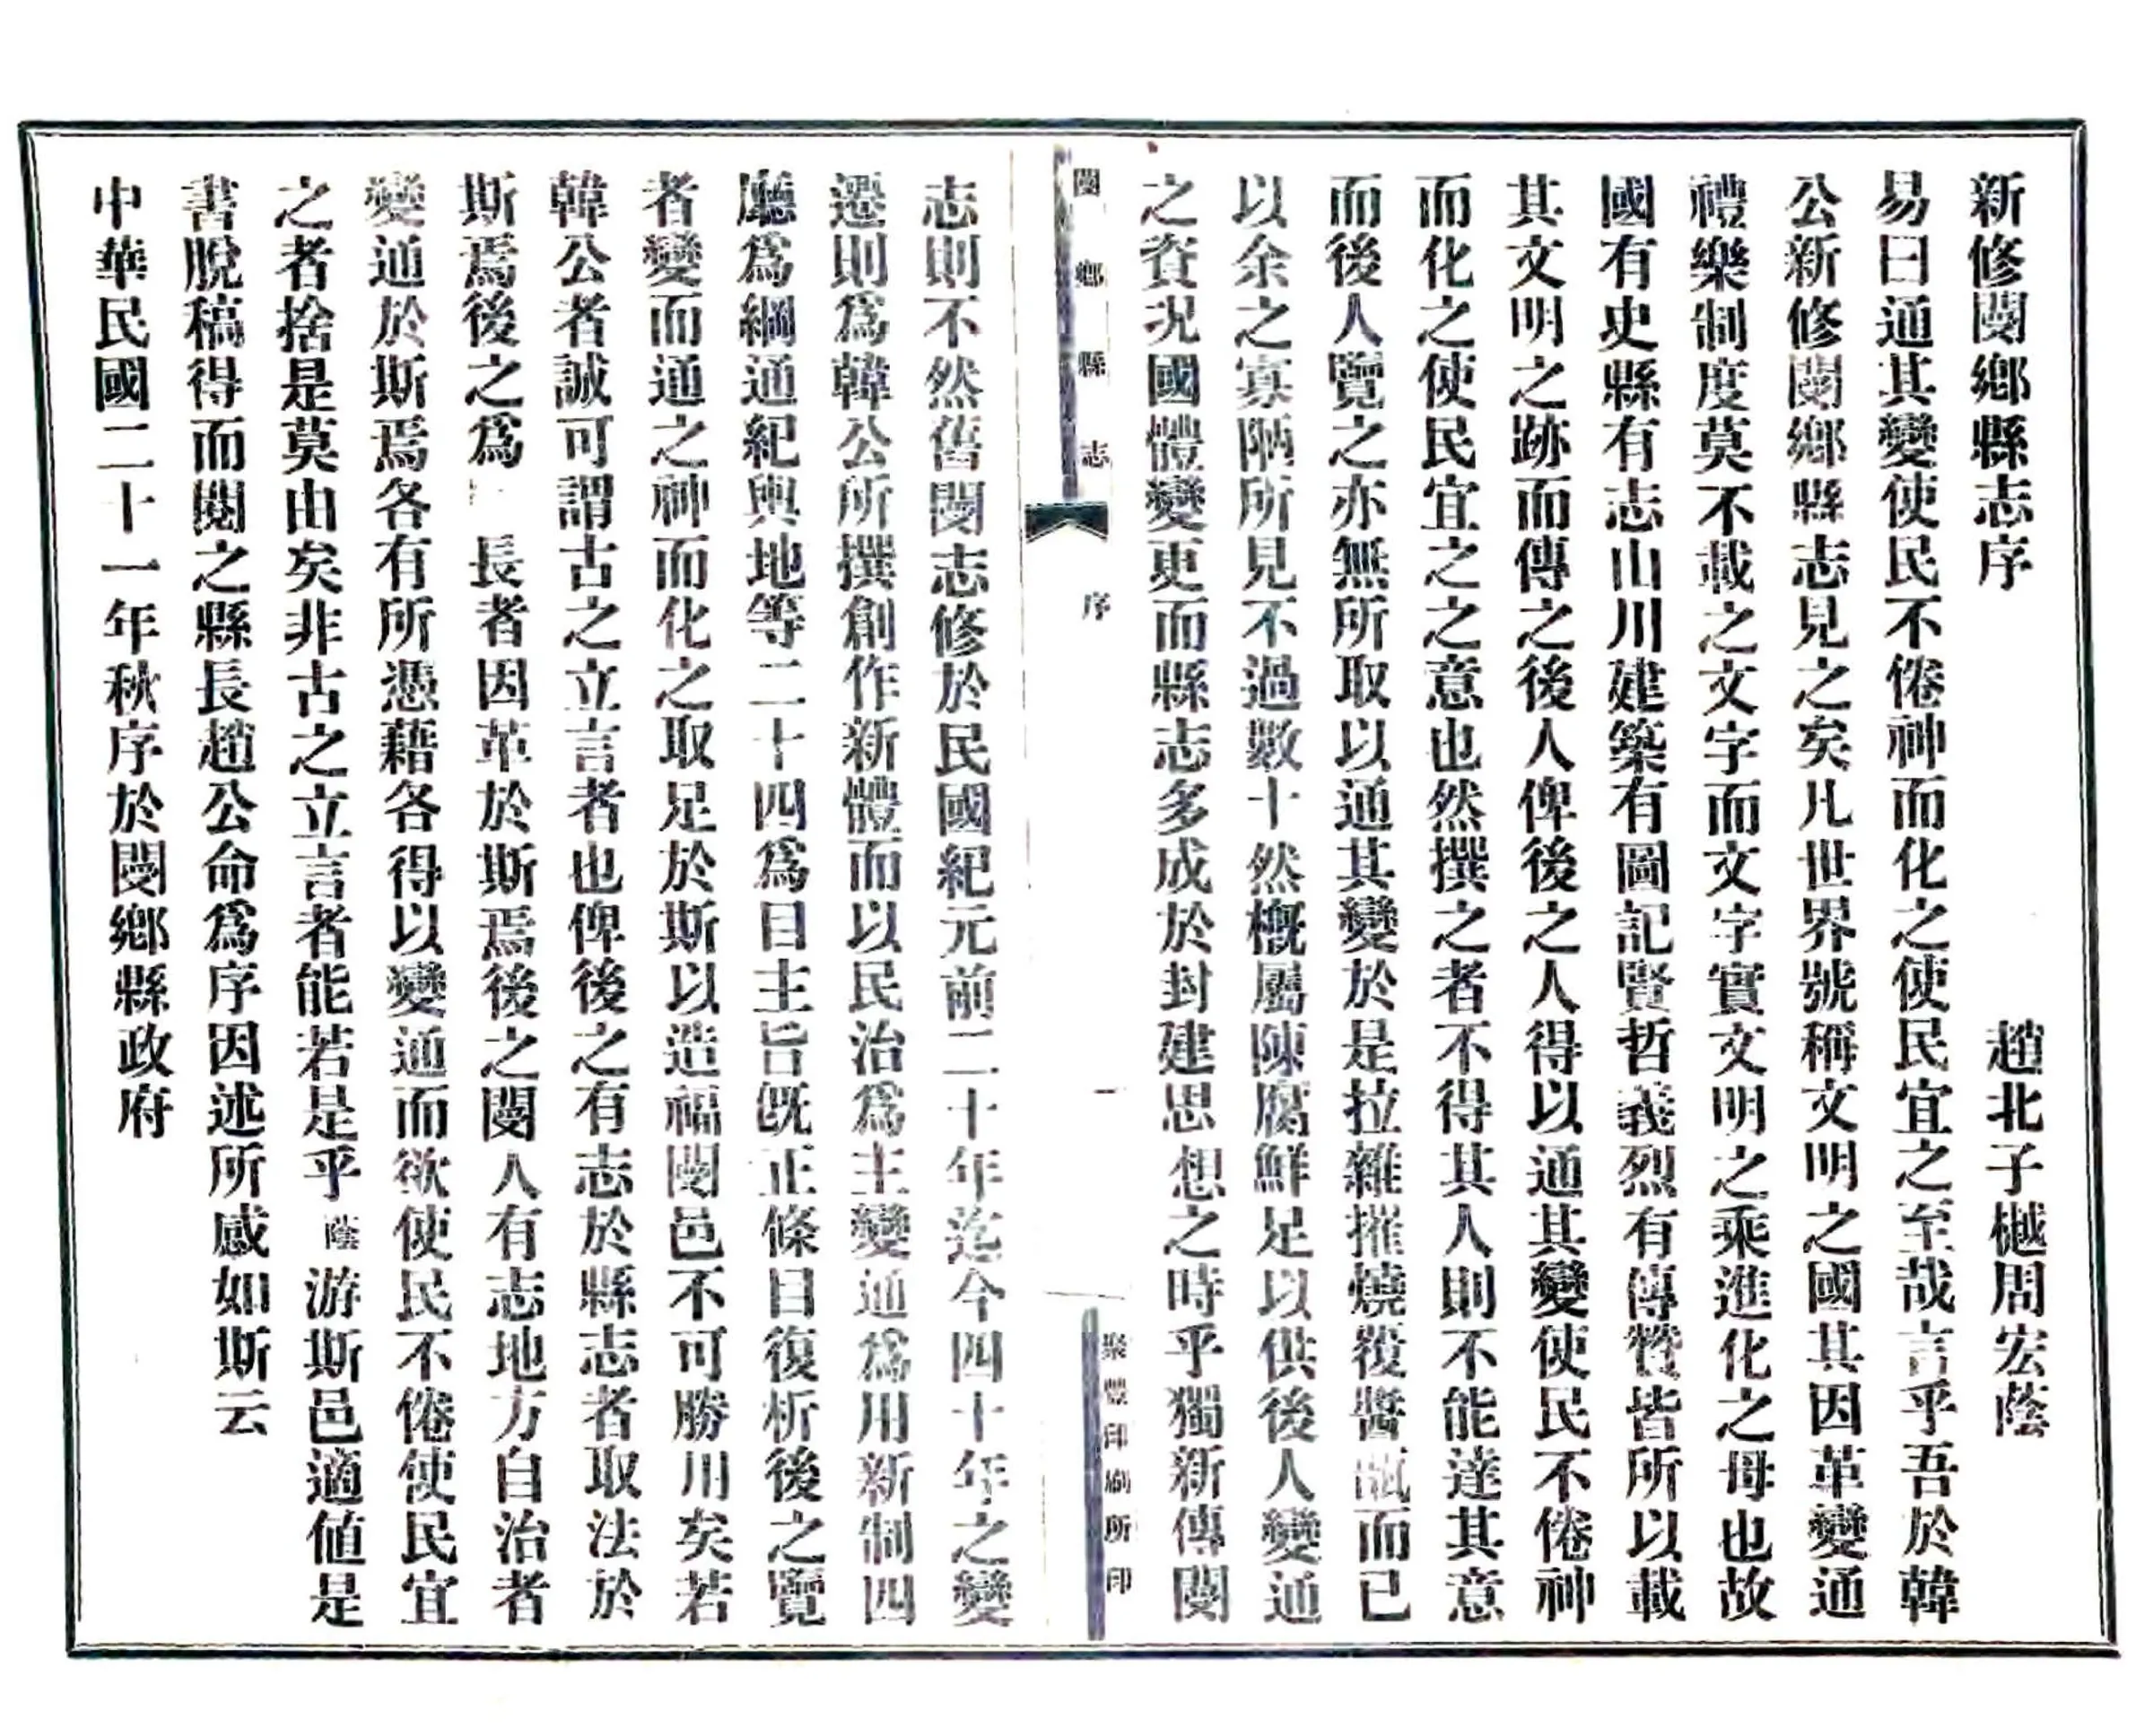 新修閿鄉縣志序
趙北子樾周宏蔭
易曰通其變使民不倦神而化之使民宜之至哉言乎吾於韓
公新修閿鄉縣志見之矣凡世界號稱文明之國其因革變通
禮樂制度莫不載之文字而文字實文明之乘進化之母也故
國有史縣有志山川建築有圖記賢哲義烈有傳贊皆所以載
其文明之跡而傳之後人俾後之人得以通其變使民不倦神
而化之使民宜之之意也然撰之者不得其人則不能達其意
而後人覽之亦無所取以通其變於是拉雜摧燒覆醬瓿而已
以余之寡陋所見不過數十然槪屬陳腐鮮足以供後人變通
之資況國體變更而縣志多成於封建思想之時乎獨新傳閿
閿鄉縣志
序
一
聚豐印刷所印
志則不然舊閿志修於民國紀元前二十年迄今四十年之變
遷則爲韓公所撰創作新體而以民治爲主變通爲用新制四
廳爲綱通紀輿地等二十四爲目主旨旣正條目復析後之覽
者變而通之神而化之取足於斯以造福閿邑不可勝用矣若
韓公者誠可謂古之立言者也俾後之有志於縣志者取法於
斯焉後之爲 長者因革於斯焉後之閿人有志地方自治者
變通於斯焉各有所憑藉各得以變通而欲使民不倦使民宜
之者捨是莫由矣非古之立言者能若是乎蔭游斯邑適値是
書脫稿得而閱之縣長趙公命爲序因述所感如斯云
中華民國二十一年秋序於閿鄉縣政府